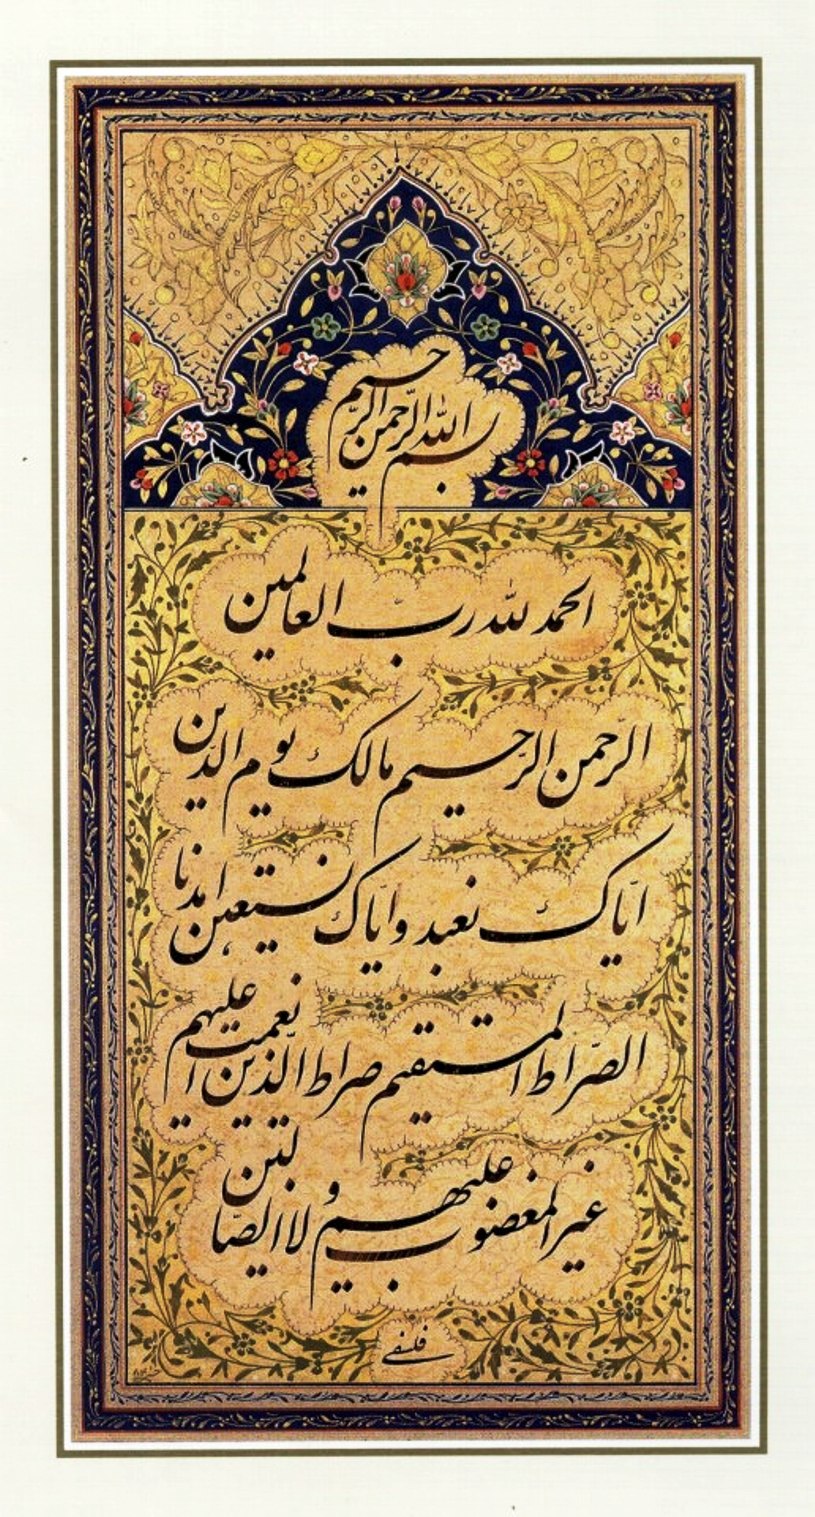 بسم الله الرّحمن الرّحيم
الحمد لله ربّ العالمين
الرّحمن الرّحيم مالك يوم الدّين
ايّاك نعبد و ايّاك نستعين اهدنا
الصّراط المستقيم صراط الّذين انعمت عليهم
غير المغضوب عليهم و لا الضّالّين
فلسفی